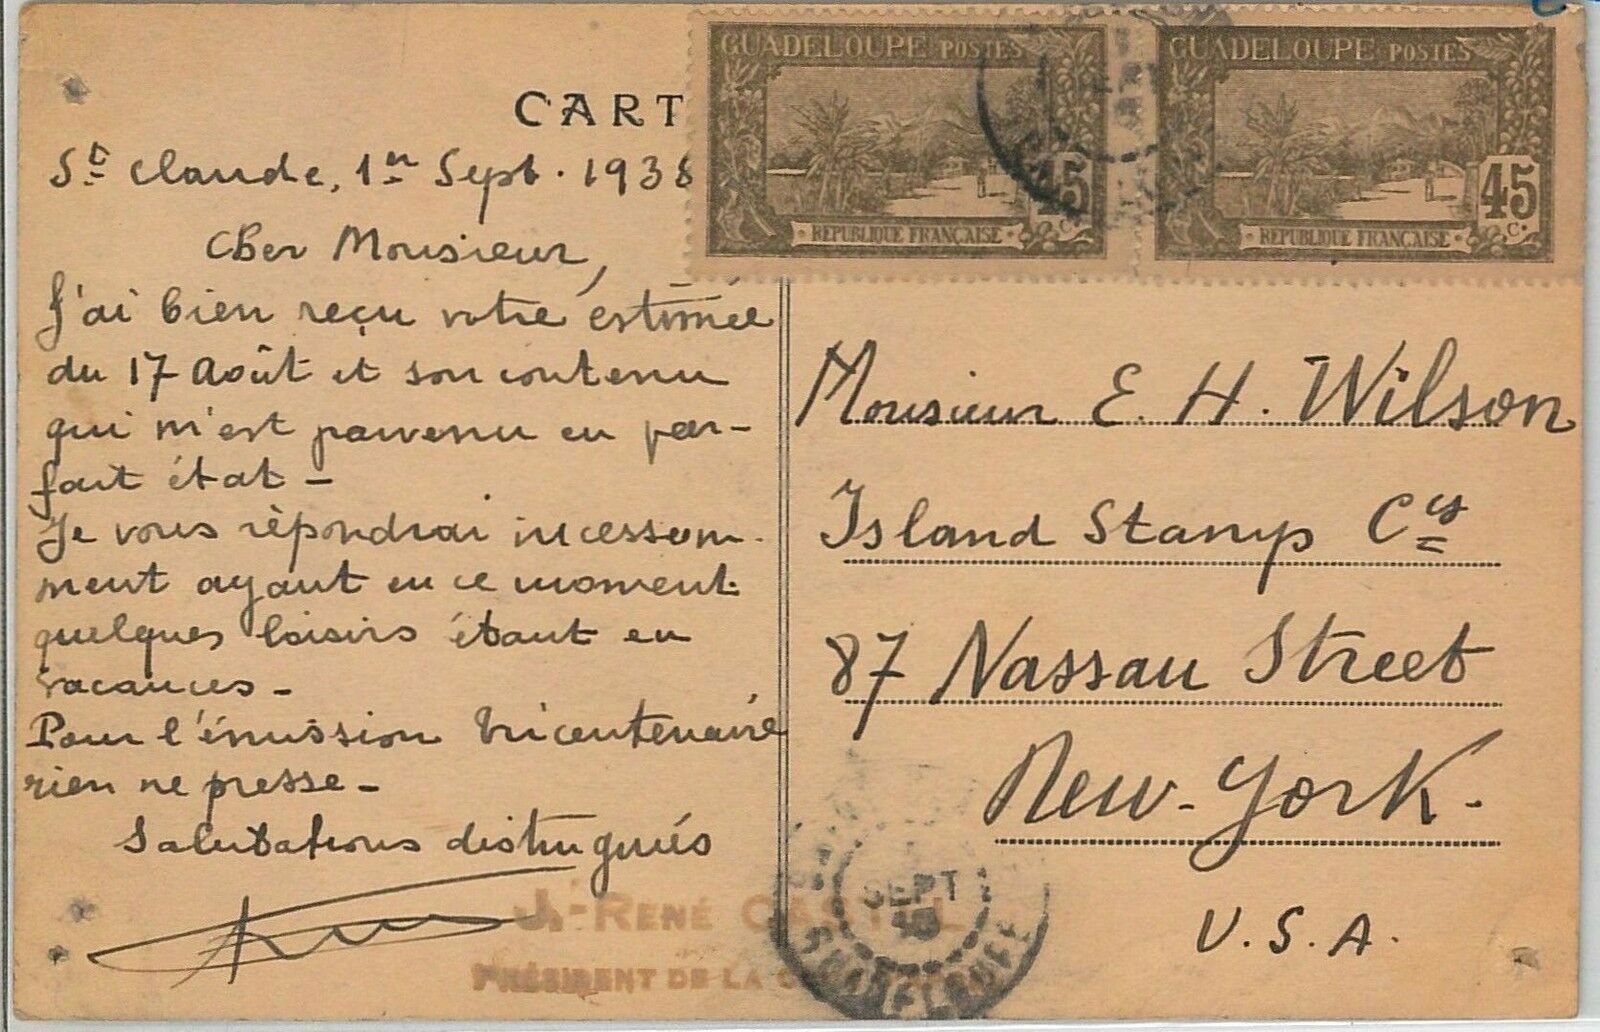 CART
GUADELOUPE POSTES
45
C.
RÉPUBLIQUE FRANÇAISE
GUADELOUPE POSTES
45
C.
RÉPUBLIQUE FRANÇAISE
St Claude, 1er Sept. 1938
Cher Monsieur,
J'ai bien reçu votre estimée
du 17 Août et son contenu
qui m'est parvenu en par-
fait état -
Je vous répondrai incessam-
ment ayant en ce moment
quelques loisirs étant en
vacances -
Pour l'émission tricentenaire
rien ne presse -
Salutations distingués
J.-RENÉ
PRÉSIDENT DE LA
SEPT
GUADELOUPE
Monsieur E. H. Wilson
Island Stamp Cy
87 Nassau Street
New-York-
U.S.A.